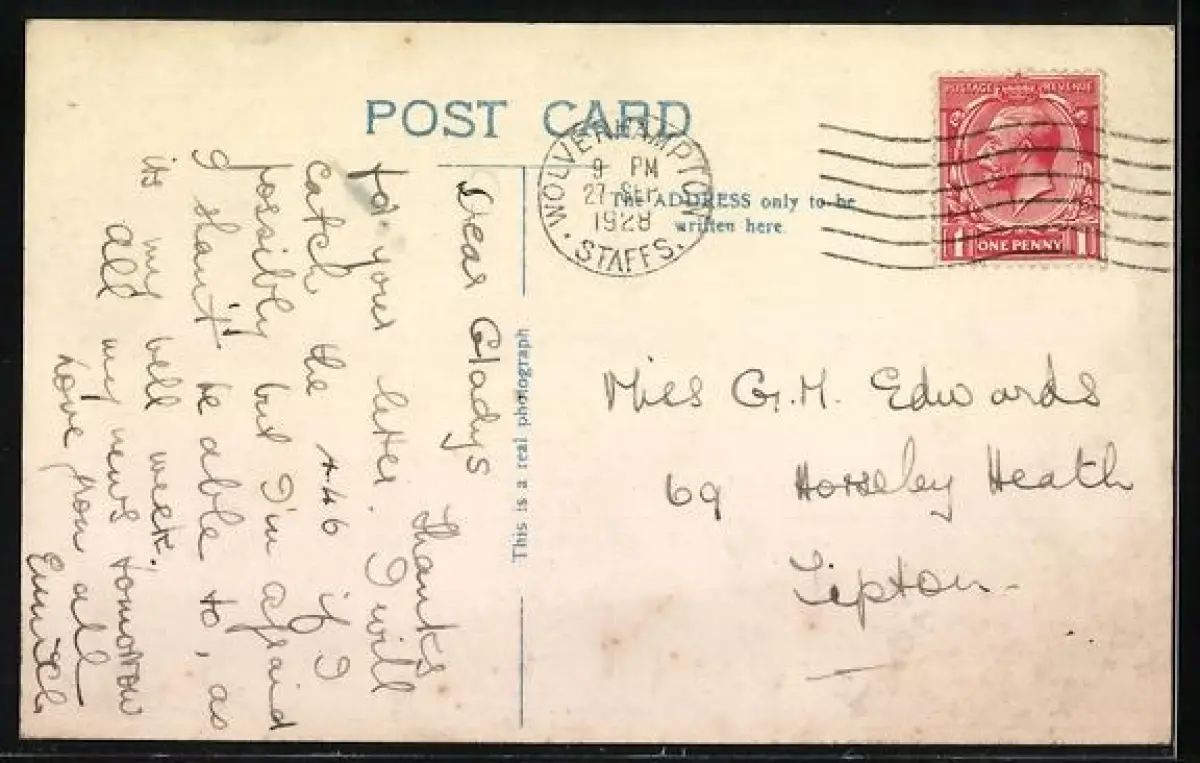 POST CARD
The ADDRESS only to be
written here.
This is a real photograph
WOLVERHAMPTON
9 PM
27 SEP
1928
STAFFS.
POSTAGE REVENUE
1 ONE PENNY 1
Miss G.M. Edwards
69 Horseley Heath
Tipton
Dear Gladys
Thanks
for your letter. I will
catch the 4.46 if I
possibly but I'm afraid
I shan't be able to, as
its my bell week.
All my news tomorrow
Love you all